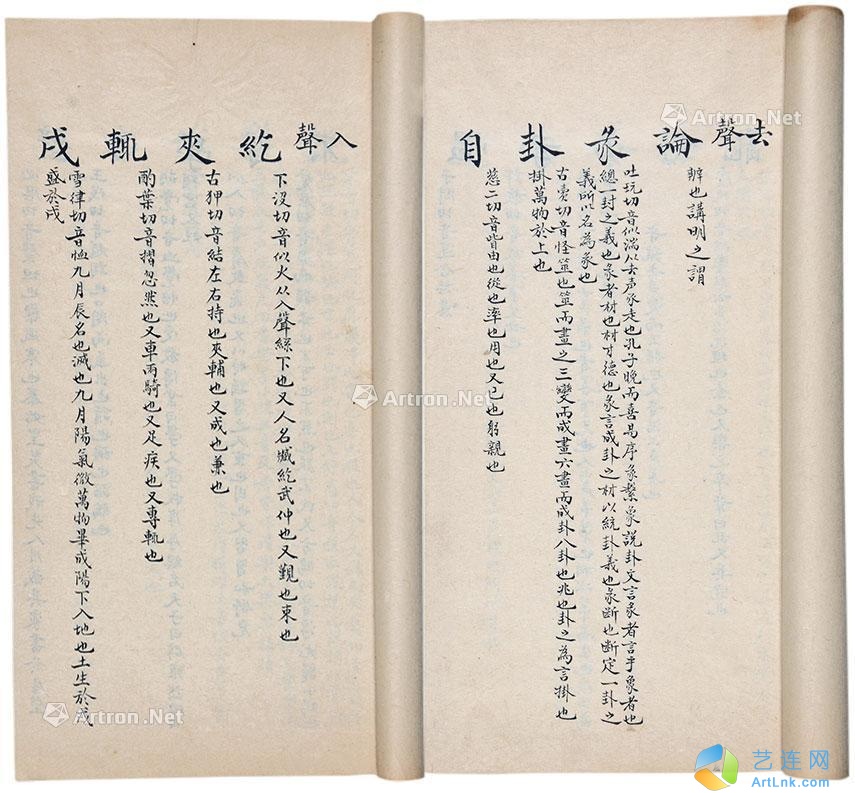 去聲
論
辨也講明之謂
彖
吐玩切音似湍从去声豕走也孔子晚而喜易序彖繫象說卦文言彖者言乎象者也
總一卦之義也彖者材也材才德也彖言成卦之材以統卦義也彖断也断定一卦之
義所以名為彖也
卦
古賣切音怪筮也筮而畫之三變而成畫六畫而成卦八卦也兆也卦之為言掛也
掛萬物於上也
自
慈二切音眥由也從也率也用也又己也躬親也
入聲
紇
下沒切音似火从入聲絲下也又人名臧紇武仲也又觀也束也
夾
古狎切音結左右持也夾輔也又成也兼也
輒
酌葉切音摺忽然也又車兩騎也又足疾也又專輒也
戌
雪律切音恤九月辰名也滅也九月陽氣微萬物畢成陽下入地也土生於戊
盛於戌
Artron.Net
Artron.Net
Artron.Net
Artron.Net
Artron.Net
Artron.Net
艺连网
ArtLnk.Com